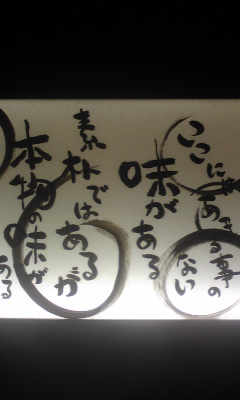 ここには
あきる事の
ない
味が
ある
素朴では
あるが
本物の味が
ある